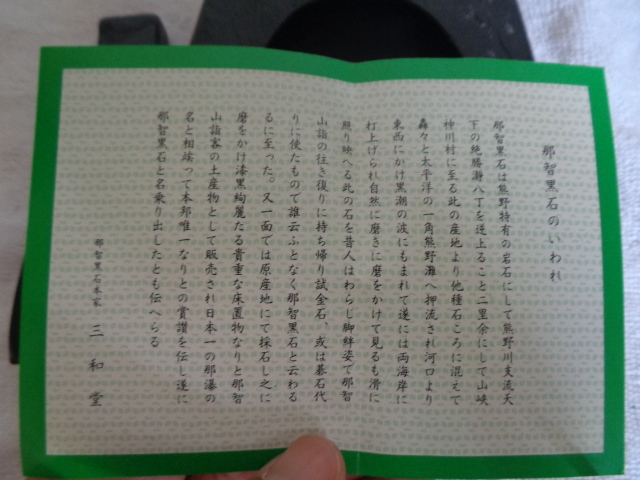 那智黒石のいわれ
那智黒石は熊野特有の岩石にして熊野川支流天
下の絶勝瀞八丁を逆上ること二里余にして山峡
神川村に至る此の産地より他種石ころに混えて
轟々と太平洋の一角熊野灘へ押流され河口より
東西にかけ黒潮の波にもまれて遂には両海岸に
打上げられ自然に磨きに磨をかけて見るも滑に
照り映へる此の石を昔人はわらじ脚絆姿で那智
山詣の往き復りに持ち帰り試金石、或は碁石代
りに使たもので誰云ふとなく那智黒石と云わる
るに至った。又一面では原産地にて採石し之に
磨をかけ漆黒絢麗たる貴重な床置物なりと那智
山詣客の土産物として販売され日本一の那瀑の
名と相端って本邦唯一なりとの賞讃を伝し遂に
那智黒石と名乗り出したとも伝へらる
那智黒石本家 三和堂